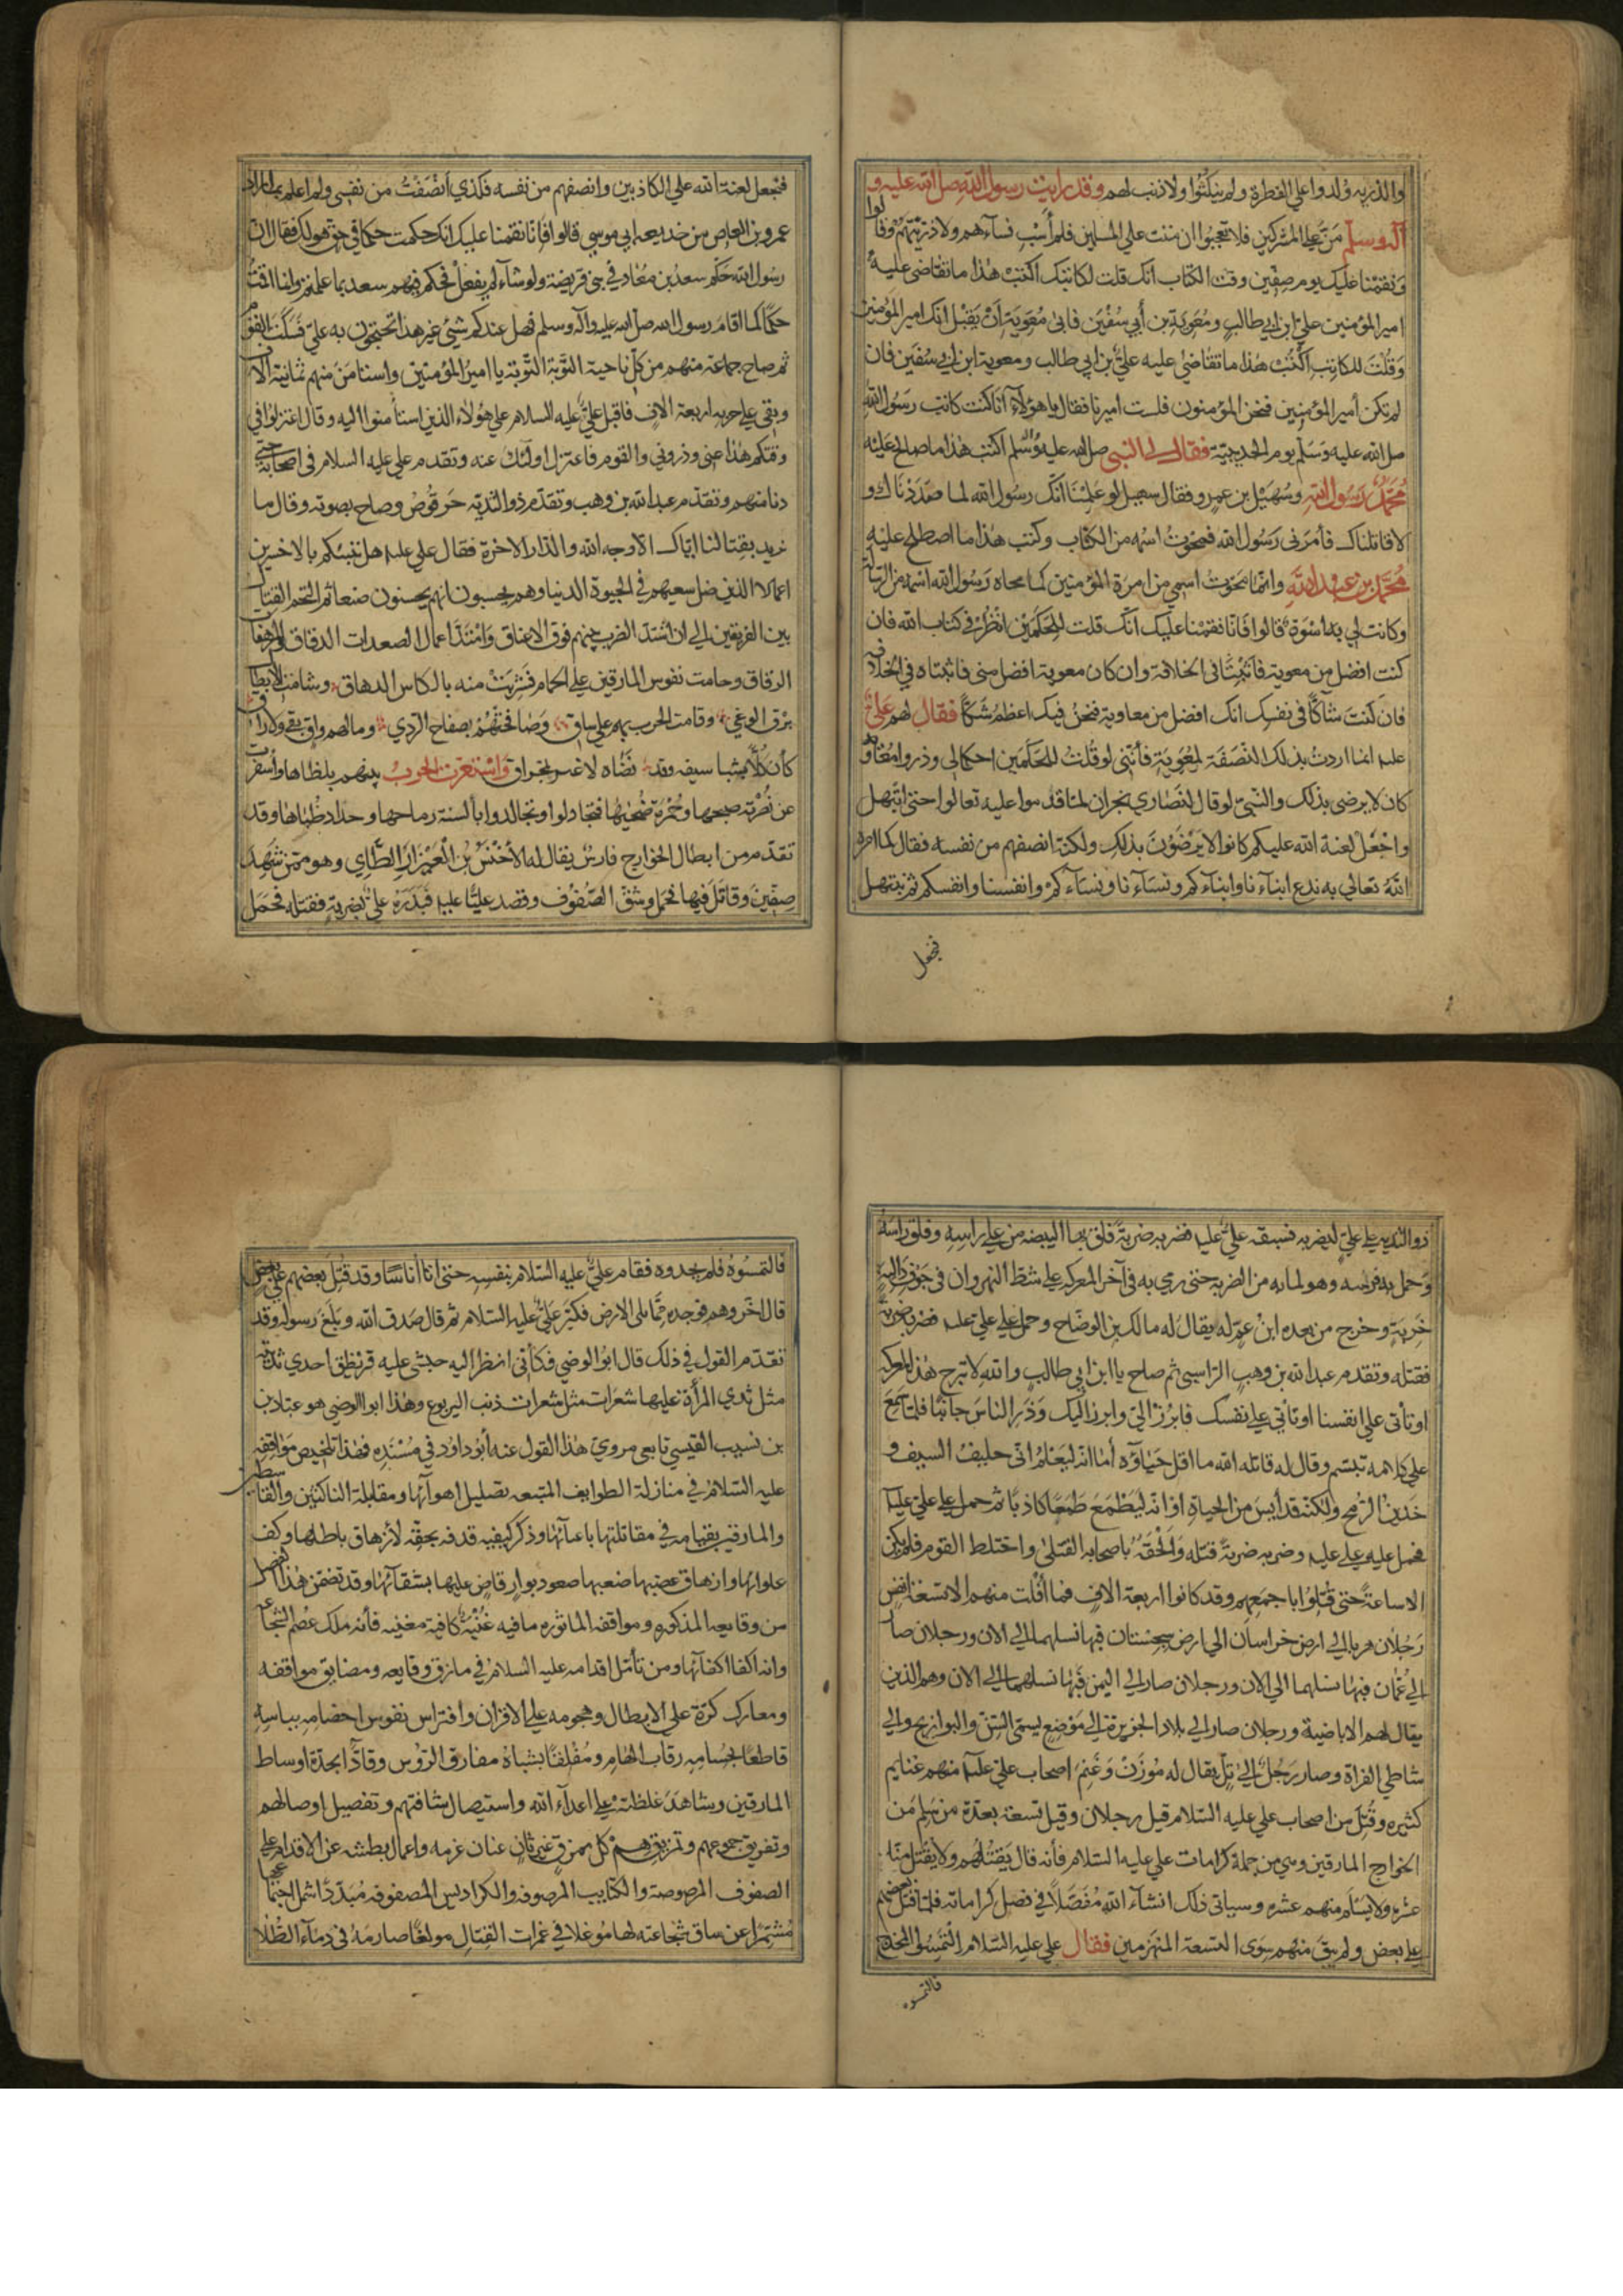 والذريه ولدوا علي الفطرة ولم ينكثوا ولا ذنب لهم وقد رايت رسول الله صل الله عليه و
آله وسلم مَنّ علي المشركين فلا تعجبوا ان مننت علي المسلمين فلم أسْبِ نسآءهم ولا ذريتهم وقالوا
ونقمنا عليك يوم صفين وقت الكتاب انك قلت لكاتبك اكتب هذا ما تقاضي عليه
امير المؤمنين علي ابن ابي طالب ومعوية بن أبي سفين فابي معوية أن يقبل انك امير المؤمنين
وقلت للكاتب اكتب هذا ما تقاضي عليه علي بن ابي طالب ومعوية ابن ابي سفين فان
لم تكن أمير المؤمنين فنحن المؤمنون فلست اميرنا فقال يا هؤلآء انا كنت كاتب رسول الله
صل الله عليه وسلم يوم الحديبية فقال لي النبي صل الله عليه وسلم اكتب هذا ما صالح عليه
محمد رسول الله وسهيل بن عمرو فقال سهيل لو علمنا انك رسول الله لما صددناك و
لا قاتلناك فأمرني رسول الله فمحوت اسمه من الكتاب وكتبت هذا ما اصطلح عليه
محمد بن عبد الله وانما محوت اسمي من امرة المؤمنين كما محاه رسول الله اسمه من الرسالة
وكانت لي به اسوة قالوا فانا نقمنا عليك انك قلت للحكمين انظرا في كتاب الله فان
كنت افضل من معوية فأثبتاني الخلافة وان كان معوية افضل مني فاثبتاه في الخلافه
فان كنت شاكا في نفسك انك افضل من معاوية فنحن فيك اعظم شكا فقال لهم علي
عليه انما اردت بذلك النصفة لمعوية فأنني لو قلت للحكمين احكما لي وذروا معاويه
كان لا يرضي بذلك والنبي لو قال لنصاري نجران لما قدموا عليه تعالوا حتي ابتهل
واجعل لعنة الله عليكم كانوا لا يرضون بذلك ولكنه انصفهم من نفسه فقال كما امره
الله تعالي به ندع ابنآءنا وابنآءكم ونسآءنا ونسآءكم وانفسنا وانفسكم ثم نبتهل
فنجعل
فنجعل لعنة الله علي الكاذبين وانصفهم من نفسه فكذي أنصفت من نفسي ولم اعلم بما اراد
عمرو بن العاص من خديعه ابي موسي قالوا فإنا نقمنا عليك انك حكمت حكما في حق هو لك فقال ان
رسول الله حكم سعد بن معاذ في بني قريضة ولو شآء لم يفعل فحكم فيهم سعد بما علمتم وانا اقمت
حكما كما اقام رسول الله صل الله عليه واله وسلم فهل عندكم شيئ غير هذا تحتجون به علي فسكت القوم
ثم صاح جماعة منهم من كل ناحية التوبة التوبة يا امير المؤمنين واستامن منهم ثمانية الاف
وبقي علي حربه اربعة الاف فاقبل علي عليه السلام علي هؤلاء الذين استأمنوا اليه وقال اعتزلوا في
وقتكم هذا عني وذروني والقوم فاعتزل اولئك عنه وتقدم علي عليه السلام في اصحابه حتي
دنا منهم وتقدم عبد الله بن وهب وتقدم ذو الثديه حرقوص وصاح بصوته وقال ما
نريد بقتالنا اياك الا وجه الله والدار الاخرة فقال علي عليه هل ننبئكم بالاخسرين
اعمالا الذين ضل سعيهم في الحيوة الدنيا وهم يحسبون انهم يحسنون صنعا ثم التحم القتال
بين الفريقين الي ان اشتد الضرب بينهم فوق الاعناق وامتد اعمال الصعدات الدقاق المرهفات
الرقاق وحامت نفوس المارقين علي الحمام فشربت منه بالكاس الدهاق وشامت الابطال
برق الوغي وقامت الحرب بهم علي ساق وصافحتهم بصفاح الردي وما لهم واق يقي ولا راق
كأن كلا بشبا سيفه وقد نضاه لاعب بمخراق واستعرت الحرب بينهم بلظاها وأسفرت
عن زرقة صبحها وحمرة ضحيها فتجادلوا وتجالدوا بألسنة رماحها وحداد ظباها وقد
تقدم من ابطال الخوارج فارس يقال له الأخنس بن العيزار الطاي وهو ممن شهد
صفين وقاتل فيها فحمل وشق الصفوف وقصد عليا عليه فبدره علي بضربة فقتله فحمل
ذو الثديه علي علي ليضربه فسبقه علي عليه فضربه ضربة فلق بها البيضه من علي راسه وفلق راسه
وحمل به فرسه وهو لما به من الضربه حتي رمي به في آخر المعركه علي شط النهروان في جوف دالية
خربة وخرج من بعده ابن عم له يقال له مالك بن الوضاح وحمل علي علي عليه فضربه ضربة
فقتله وتقدم عبد الله بن وهب الراسبي ثم صاح يا ابن ابي طالب والله لا نبرح هذا المعركه
او تأتي علي انفسنا او نأتي علي نفسك فابرز الي وابرز اليك وذر الناس جانبا فلما سمع
علي كلامه تبسم وقال له قاتله الله ما اقل حياؤه أما انه ليعلم اني حليف السيف و
خدين الرمح ولكنه قد أيس من الحياة او انه ليطمع طمعا كاذبا ثم حمل علي علي عليه
فحمل عليه علي عليه وضربه ضربة قتله والحقه باصحابه القتلي واختلط القوم فلم يكن
الا ساعة حتي قتلوا باجمعهم وقد كانوا اربعة الاف فما أفلت منهم الا تسعة انفس
رجلان هربا الي ارض خراسان الي ارض سجستان فبها نسلهما الي الان ورجلان صارا
الي عمان فبها نسلهما الي الان ورجلان صارا الي اليمن فبها نسلهما الي الان وهم الذين
يقال لهم الاباضية ورجلان صارا الي بلاد الجزيرة الي موضع يسمي السن والبوازيج والي
شاطي الفراة وصار رجل الي تل يقال له موزن وغنم اصحاب علي عليه منهم غنايم
كثيره وقتل من اصحاب علي عليه السلام قيل رجلان وقيل تسعة بعدة من سلم من
الخوارج المارقين وهي من جملة كرامات علي عليه السلام فأنه قال يقتلهم ولا يقتل منا
عشره ولا يسلم منهم عشره وسياتي ذلك انشآء الله مفصلا في فصل كراماته فلما قتل بعضهم
علي بعض ولم يبق منهم سوي التسعة المنهزمين فقال علي عليه السلام التمسوا المخدج
فالتمسوه
فالتمسوه فلم يجدوه فقام علي عليه السلام بنفسه حتي اتا أناسا وقد قتل بعضهم علي بعض
قال اخروهم فوجده مما يلي الارض فكبر علي عليه السلام ثم قال صدق الله وبلغ رسوله وقد
تقدم القول في ذلك قال ابو الوضي فكأني انظر اليه حبشي عليه قريطق احدي ثدييه
مثل ثدي المرأة عليها شعرات مثل شعرات ذنب اليربوع وهذا ابو الوضي هو عباد بن
بن نسيب القيسي تابعي مروي هذا القول عنه أبو داود في مسنده فهذا تلخيص مواقفه
عليه السلام في منازلة الطوايف المتبعه تضليل اهوآئها ومقابلة الناكثين والقاسطين
والمارقين بقيامه في مقاتلتها باعبائها وذكر كيفيه قدفه بحقه لازهاق باطلها وكف
علوائها وارهاق عصبها صعبها صعود بوار قاض عليها بشقائها وقد تضمن هذا الفصل
من وقايعه المذكوره ومواقفه الماثوره ما فيه غنية كافية مغنيه فأنه ملك عصم الشجاعه
وانه اكفا اكفائها ومن تأمل اقدامه عليه السلام في مازق وقايعه ومضايق مواقفه
ومعارك كرة علي الابطال وهجومه علي الاقران وافتراس نفوس اخصامه بباسه
قاطعا بحسامه رقاب الهام ومفلقا بشباه مفارق الرؤس وقادا بحده اوساط
المارقين وشاهد غلظته علي اعداء الله واستيصال شافتهم وتفصيل اوصالهم
وتفريق جموعهم وتمزيقهم كل ممزق غير ثان عنان عزمه واعمال بطشه عن الاقدام علي
الصفوف المرصوصة والكتايب المرصوفه والكراديس المصفوفه مبددا شمل اجتماعها
مشمرا عن ساق شجاعته لها موغلا في غمرات القتال مولغا صارمه في دمآء الطلا